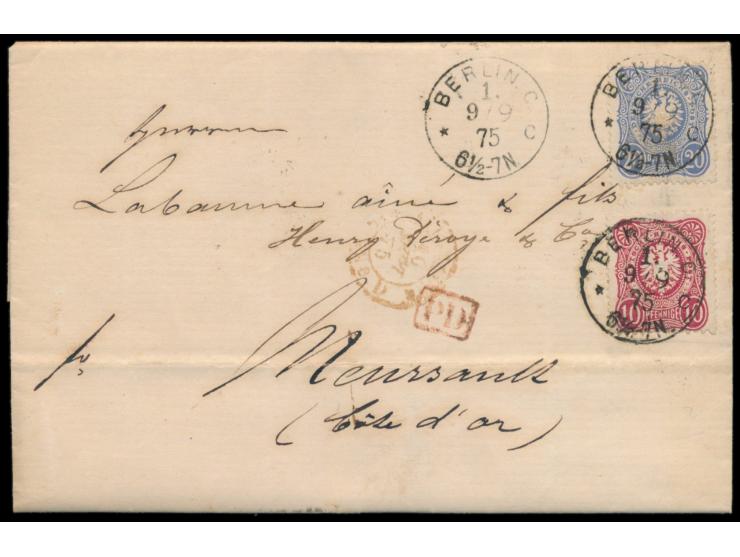 BERLIN. C.
1.
9/9
75
★ C
6½-7N.
BERLIN
1.
9/9
75
★ C
6½-7N.
20
Herren
Labaume aîné & fils
Henry Déroye & Co
BERLIN
1.
9/9
75
★ C
6½-7N.
10 PFENNIGE 10
PD
fr.
Meursault
(Côte d'or)